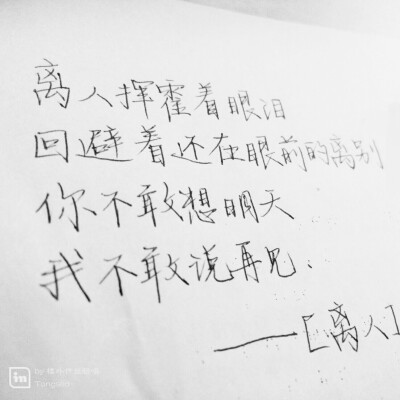 离人挥霍着眼泪
回避着还在眼前的离别
你不敢想明天
我不敢说再见.
——[离人]
in